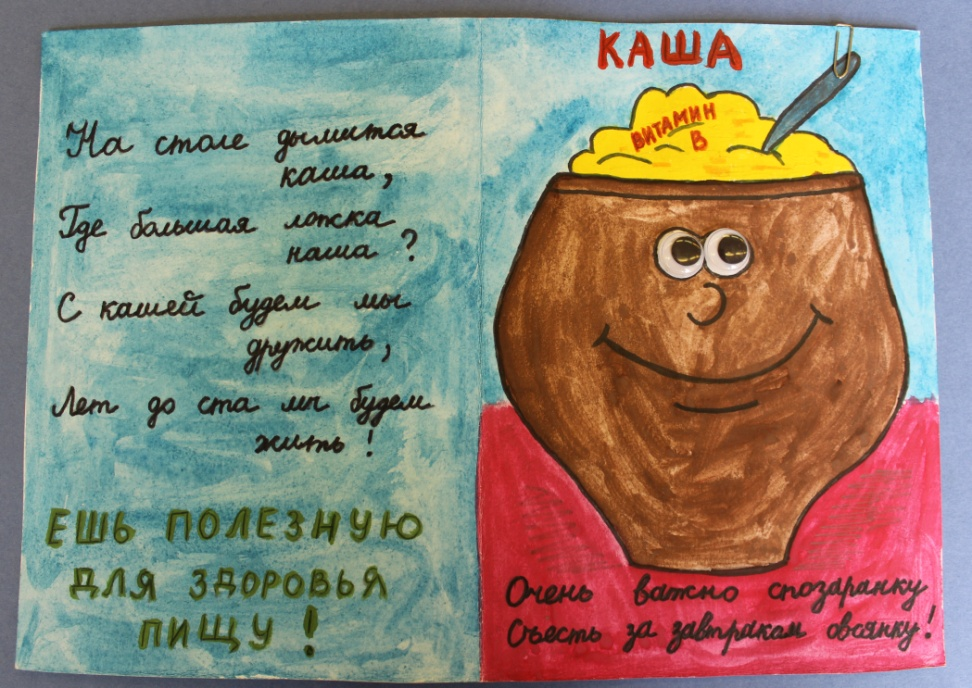 На столе дымится
каша,
Где большая ложка
наша?
С кашей будем мы
дружить,
Лет до ста мы будем
жить!
ЕШЬ ПОЛЕЗНУЮ
ДЛЯ ЗДОРОВЬЯ
ПИЩУ!
КАША
ВИТАМИН
В
Очень важно спозаранку
Съесть за завтраком овсянку!